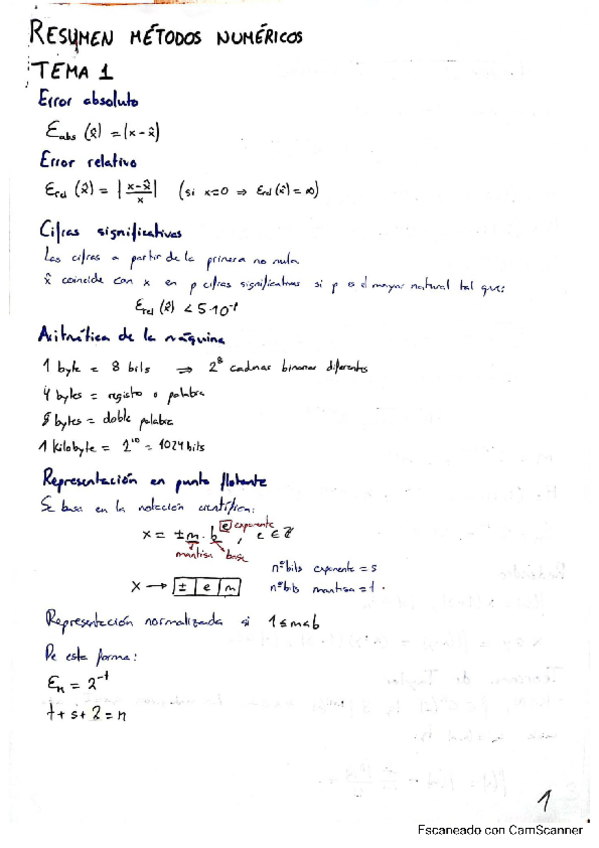 RESUMEN MÉTODOS NUMÉRICOS
TEMA 1
Error absoluto
Eabs (x̂) = |x-x̂|
Error relativo
Erel (x̂) = |x-x̂/x| (si x=0 ⇒ Erel(x̂) = ∞)
Cifras significativas
Las cifras a partir de la primera no nula
x̂ coincide con x en p cifras significativas si p es el mayor natural tal que:
Erel (x̂) < 5·10⁻ᵖ
Aritmética de la máquina
1 byte = 8 bits ⇒ 2⁸ cadenas binarias diferentes
4 bytes = registro o palabra
8 bytes = doble palabra
1 Kilobyte = 2¹⁰ = 1024 bits
Representación en punto flotante
Se basa en la notación científica:
x = ± m · b^e exponente , e ∈ ℤ
mantisa base
nº bits exponente = s
x → ± e m nº bits mantisa = t
Representación normalizada si 1 ≤ m < b
De esta forma:
En = 2⁻ᵗ
t + s + 2 = n
1
Escaneado con CamScanner